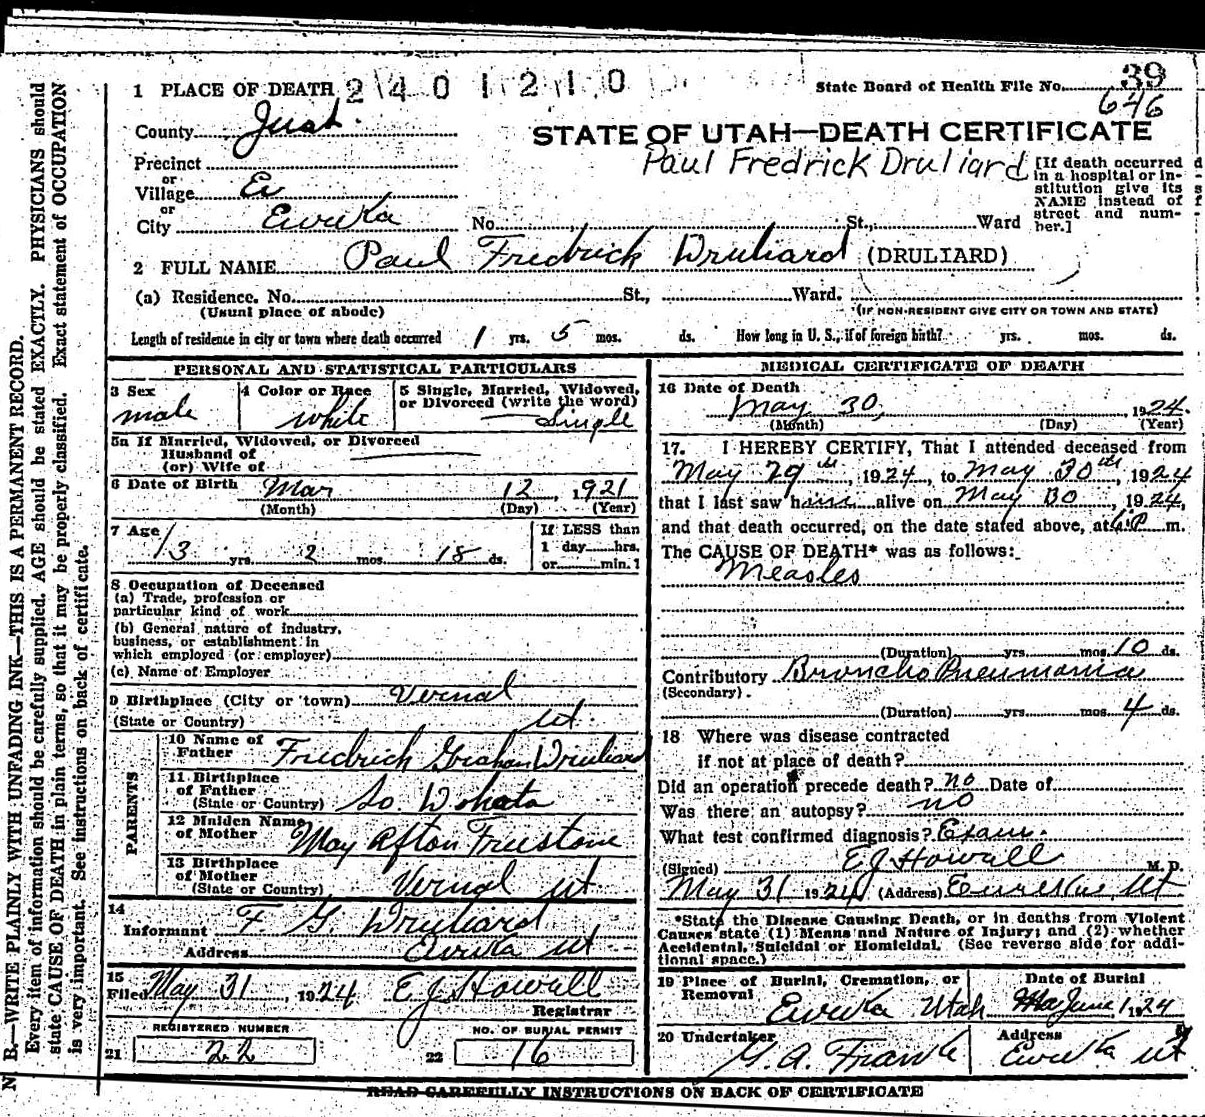 1 PLACE OF DEATH 2401210
State Board of Health File No. 39
646
County Juab.
STATE OF UTAH—DEATH CERTIFICATE
Paul Fredrick Druliard
Precinct
or
Village Eu
or
City Eureka No. St., Ward
[If death occurred in a hospital or institution give its NAME instead of street and number.]
2 FULL NAME Paul Fredrick Druliard (DRULIARD)
(a) Residence. No. St., Ward.
(Usual place of abode) (IF NON-RESIDENT GIVE CITY OR TOWN AND STATE)
Length of residence in city or town where death occurred 1 yrs. 5 mos. ds. How long in U. S., if of foreign birth? yrs. mos. ds.
PERSONAL AND STATISTICAL PARTICULARS
3 Sex male
4 Color or Race white
5 Single, Married, Widowed, or Divorced (write the word) Single
5a If Married, Widowed, or Divorced
Husband of
(or) Wife of
6 Date of Birth Mar 12, 1921
(Month) (Day) (Year)
7 Age 3 yrs. 2 mos. 18 ds.
If LESS than
1 day hrs.
or min.?
8 Occupation of Deceased
(a) Trade, profession or
particular kind of work
(b) General nature of industry,
business, or establishment in
which employed (or employer)
(c) Name of Employer
9 Birthplace (City or town) Vernal
(State or Country) Ut.
PARENTS
10 Name of Father Fredrick Graham Druliard
11 Birthplace of Father
(State or Country) So. Dakota
12 Maiden Name of Mother May Afton Freestone
13 Birthplace of Mother
(State or Country) Vernal Ut
14
Informant F. G. Druliard
Address Eureka Ut
15
Filed May 31, 1924 E J Howell
Registrar
REGISTERED NUMBER
21 22
NO. OF BURIAL PERMIT
22 16
MEDICAL CERTIFICATE OF DEATH
16 Date of Death
May 30, 1924.
(Month) (Day) (Year)
17. I HEREBY CERTIFY, That I attended deceased from
May 29th, 1924, to May 30th, 1924
that I last saw him alive on May 30, 1924,
and that death occurred, on the date stated above, at 6 P m.
The CAUSE OF DEATH* was as follows:
Measles
(Duration) yrs. mos. 10 ds.
Contributory Broncho Pneumonia
(Secondary)
(Duration) yrs. mos. 4 ds.
18 Where was disease contracted
if not at place of death?
Did an operation precede death? no Date of
Was there an autopsy? no
What test confirmed diagnosis? Exam.
(Signed) E J Howell M. D.
May 31 1924 (Address) Eureka, Ut
*State the Disease Causing Death, or in deaths from Violent
Causes state (1) Means and Nature of Injury; and (2) whether
Accidental, Suicidal or Homicidal. (See reverse side for addi-
tional space.)
19 Place of Burial, Cremation, or Removal Eureka Utah
Date of Burial
May June 1 1924
20 Undertaker G. A. Franke
Address Eureka Ut
READ CAREFULLY INSTRUCTIONS ON BACK OF CERTIFICATE
N. B.—WRITE PLAINLY WITH UNFADING INK—THIS IS A PERMANENT RECORD.
Every item of information should be carefully supplied. AGE should be stated EXACTLY. PHYSICIANS should
state CAUSE OF DEATH in plain terms, so that it may be properly classified. Exact statement of OCCUPATION
is very important. See instructions on back of certificate.